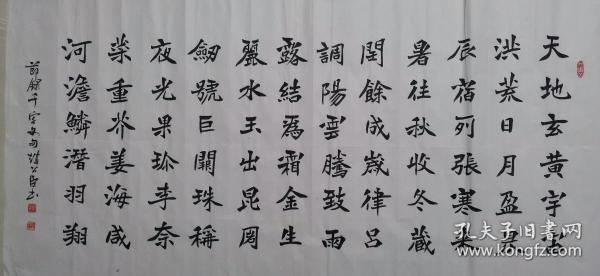 天地玄黃宇宙
洪荒日月盈昃
辰宿列張寒來
暑往秋收冬藏
閏餘成歲律呂
調陽雲騰致雨
露結為霜金生
麗水玉出昆岡
劒號巨闕珠稱
夜光果珍李奈
菜重芥姜海咸
河澹鱗潛羽翔
節錄千字文句
孔夫子旧书网
kongfz.com